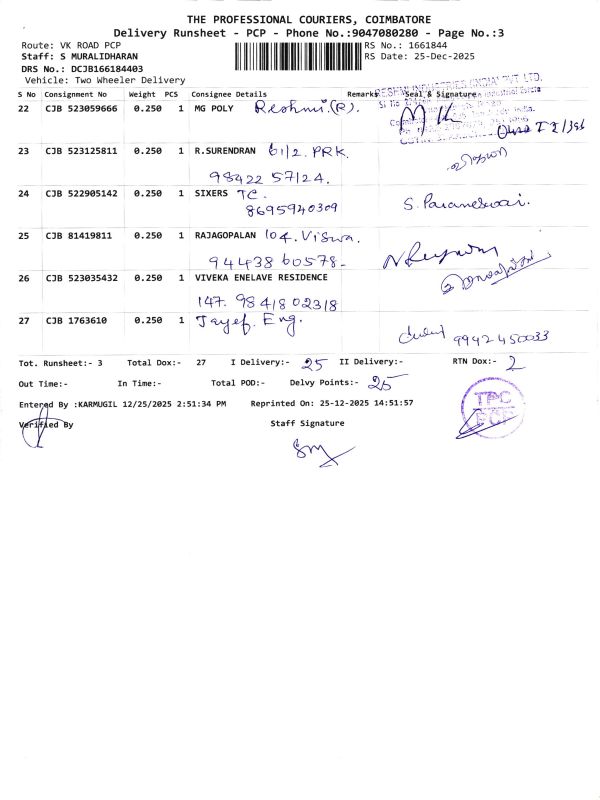 THE PROFESSIONAL COURIERS, COIMBATORE
Delivery Runsheet - PCP - Phone No.:9047080280 - Page No.:3
Route: VK ROAD PCP RS No.: 1661844
Staff: S MURALIDHARAN RS Date: 25-Dec-2025
DRS No.: DCJB166184403
Vehicle: Two Wheeler Delivery
S No Consignment No Weight PCS Consignee Details Remarks Seal & Signature
22 CJB 523059666 0.250 1 MG POLY Reshmi.(R).
23 CJB 523125811 0.250 1 R.SURENDRAN 61/2. PRK.
98422 57124.
24 CJB 522905142 0.250 1 SIXERS TC.
8695940309 S. Parameswari.
25 CJB 81419811 0.250 1 RAJAGOPALAN 104. Viswa.
94438 60578-
26 CJB 523035432 0.250 1 VIVEKA ENELAVE RESIDENCE
147. 9841802318
27 CJB 1763610 0.250 1 Jayef. Eng.
9942450033
Tot. Runsheet:- 3 Total Dox:- 27 I Delivery:- 25 II Delivery:- RTN Dox:- 2
Out Time:- In Time:- Total POD:- Delvy Points:- 25
Entered By :KARMUGIL 12/25/2025 2:51:34 PM Reprinted On: 25-12-2025 14:51:57
TPC
PCP
Verified By Staff Signature